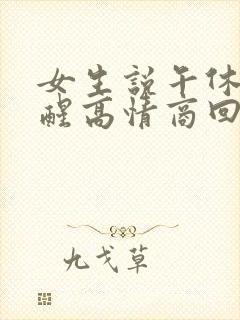 女生说午休
醒高情商回
九戈草